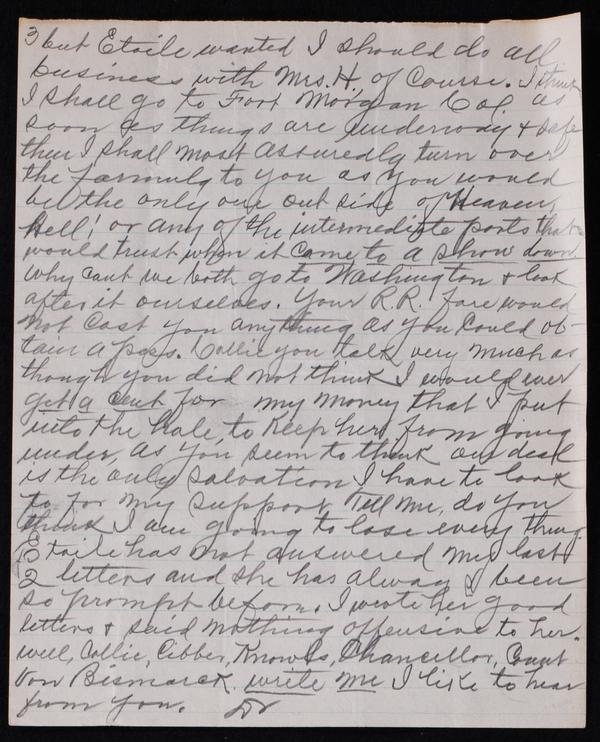 3 but Etoile wanted I should do all
business with Mrs. H. of Course. I think
I shall go to Fort Morgan Col. as
soon as things are underway & safe
then I shall most assuredly turn over
the formula to you as you would
be the only one out side of Heaven,
Hell! or any of the intermediate ports that
would trust when it came to a show down.
Why cant we both go to Washington & look
after it ourselves. Your R.R. fare would
not cost you anything as you could ob-
tain a pass. Collie you talk very much as
though you did not think I would ever
get a cent for my money that I put
into the hole, to keep her from going
under, as you seem to think our deal
is the only salvation I have to look
to for my support. Tell me, do you
think I am going to lose every thing.
Etoile has not answered my last
2 letters and she has always been
so prompt before. I wrote her good
letters & said nothing offensive to her.
well, Collie, Cibber, Knowls, Chancellor, Count
Von Bismarck. write me I like to hear
from you. Dr